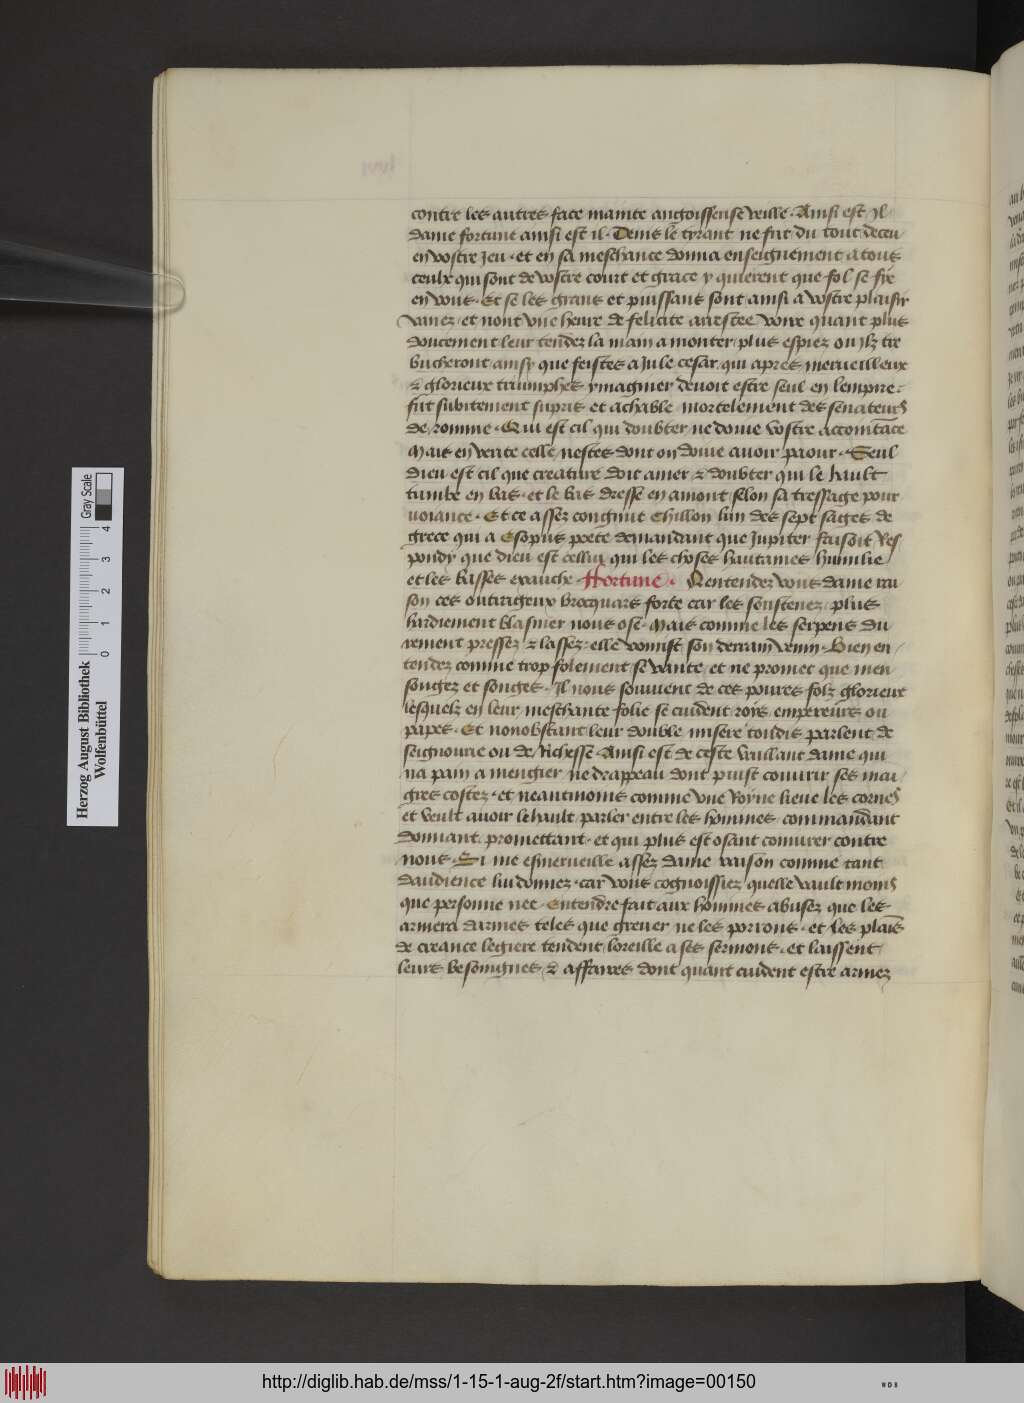 contre les autres face mainte angoissense veille · Ainsi est Il
dame fortune ainsi est il · Denis le tyrant ne fut du tout deceu
en vostre Jeu · et en sa meschance donna enseignement a tous
ceulx qui sont de vostre court et grace y quierent que fol se fye
en vous · Et se les grans et puissans sont ainsi a vostre plaisir
vanez · et nont vne heure de felicite arrestee voire quant plus
doucement leur tendez la main a monter plus espiez ou Ilz tre
bucheront ainsy que feistes a Jule cesar qui apres merueilleux
& glorieux triumphes ymaginer deuoit estre seul en lempire ·
fut subitement supris et achable mortelement des senateurs
de romme · Qui est cil qui doubter ne doiue vostre accointace
Mais en verite celle nestes dont on doiue auoir paour · Seul
dieu est cil que creature doit amer & doubter qui le hault
tumbe en bas · et le bas dresse en amont selon sa tressage pour
uoiance · Et ce assez congnut Chillon lun des sept sages de
grece qui a Esopus poete demandant que Jupiter faisoit Res
pondy que dieu est cellui qui les choses haultaines humilie
et les basses exauche · Fortune · Nentendez vous dame rai
son ces oultrageux brocquars forte car les soustenez plus
hardiement blasmer nous ose · Mais comme les serpens du
rement pressez & lassez · elle vomist son derrain venin · Bien en
tendez comme trop folement se vante et ne promet que men
songez et songes · Il nous souuient de ces poures folz glorieux
lesquelz en leur meschante folie se cuident roys empereurs ou
papes · Et nonobstant leur double misere toudis parlent de
seignourie ou de Richesse · Ainsi est de ceste vaillant dame qui
na pain a mengier ne drappeau dont puist couurir ses mai
gres costez · et neantmoins comme vne Royne lieue les cornes
et veult auoir le hault parler entre les hommes · commandant
donnant · promettant · et qui plus est osant coniurer contre
nous · Si me esmerueille assez dame raison comme tant
daudience lui donnez · car vous cognoissiez quelle vault moins
que personne nee · Entendre fait aux hommes abusez que les
armera darmes teles que greuer ne les porrons · et les plais
de creance legiere tendent loreille a ses sermons · et laissent
leurs besoingnes & affaires dont quant cuident estre armez
Herzog August Bibliothek
Wolfenbüttel
0 1 2 3 4
Gray Scale
http://diglib.hab.de/mss/1-15-1-aug-2f/start.htm?image=00150